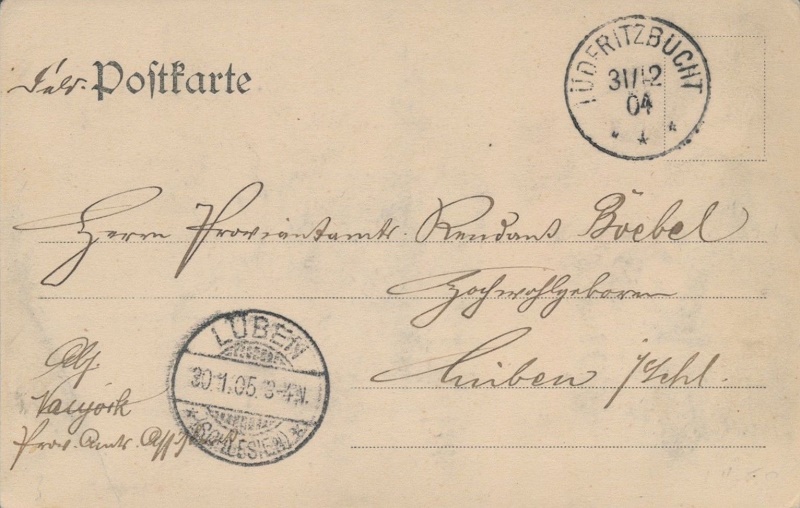 Feld-Postkarte
LÜDERITZBUCHT
31/12
04
* * *
Herrn Proviantamts-Rendant Boebel
Hochwohlgeboren
Lüben i/Schl.
LÜBEN
30.1.05. 3-4N.
* (SCHLESIEN) *
Abs.
Prov. Amts. Ass